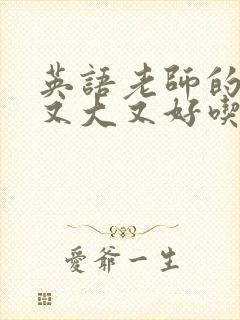 英語老師的
又大又好喫
愛爺一生